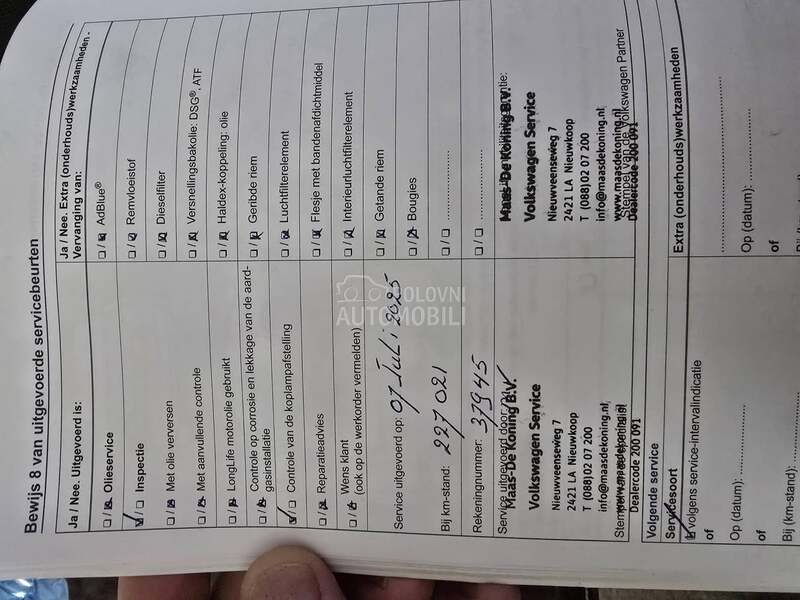 Bewijs 8 van uitgevoerde servicebeurten
Ja / Nee. Uitgevoerd is:
□ / □ Olieservice
□ / □ Inspectie
□ / □ Met olie verversen
□ / □ Met aanvullende controle
□ / □ LongLife motorolie gebruikt
□ / □ Controle op corrosie en lekkage van de aard-
gasinstallatie
□ / □ Controle van de koplampafstelling
□ / □ Reparatieadvies
□ / □ Wens klant
(ook op de werkorder vermelden)
Service uitgevoerd op: 07 Juli 2025
Bij km-stand: 227 021
Rekeningnummer: 37945
Service uitgevoerd door
Maas-De Koning B.V.
Volkswagen Service
Nieuwveenseweg 7
2421 LA Nieuwkoop
T (088)02 07 200
info@maasdekoning.nl
www.maasdekoning.nl
Dealercode 200 091
Volgende service
Servicesoort
volgens service-intervalindicatie
of
Op (datum):
of
Bij (km-stand):
Ja / Nee. Extra (onderhouds)werkzaamheden -
Vervanging van:
□ / □ AdBlue®
□ / □ Remvloeistof
□ / □ Dieselfilter
□ / □ Versnellingsbakolie: DSG®, ATF
□ / □ Haldex-koppeling: olie
□ / □ Geribde riem
□ / □ Luchtfilterelement
□ / □ Flesje met bandenafdichtmiddel
□ / □ Interieurluchtfilterelement
□ / □ Getande riem
□ / □ Bougies
□ / □
□ / □
Maas-De Koning B.V.
Volkswagen Service
Nieuwveenseweg 7
2421 LA Nieuwkoop
T (088)02 07 200
info@maasdekoning.nl
www.maasdekoning.nl
Stempel van de Volkswagen Partner
Dealercode 200 091
Extra (onderhouds)werkzaamheden
Op (datum):
of
POLOVNI
AUTOMOBILI